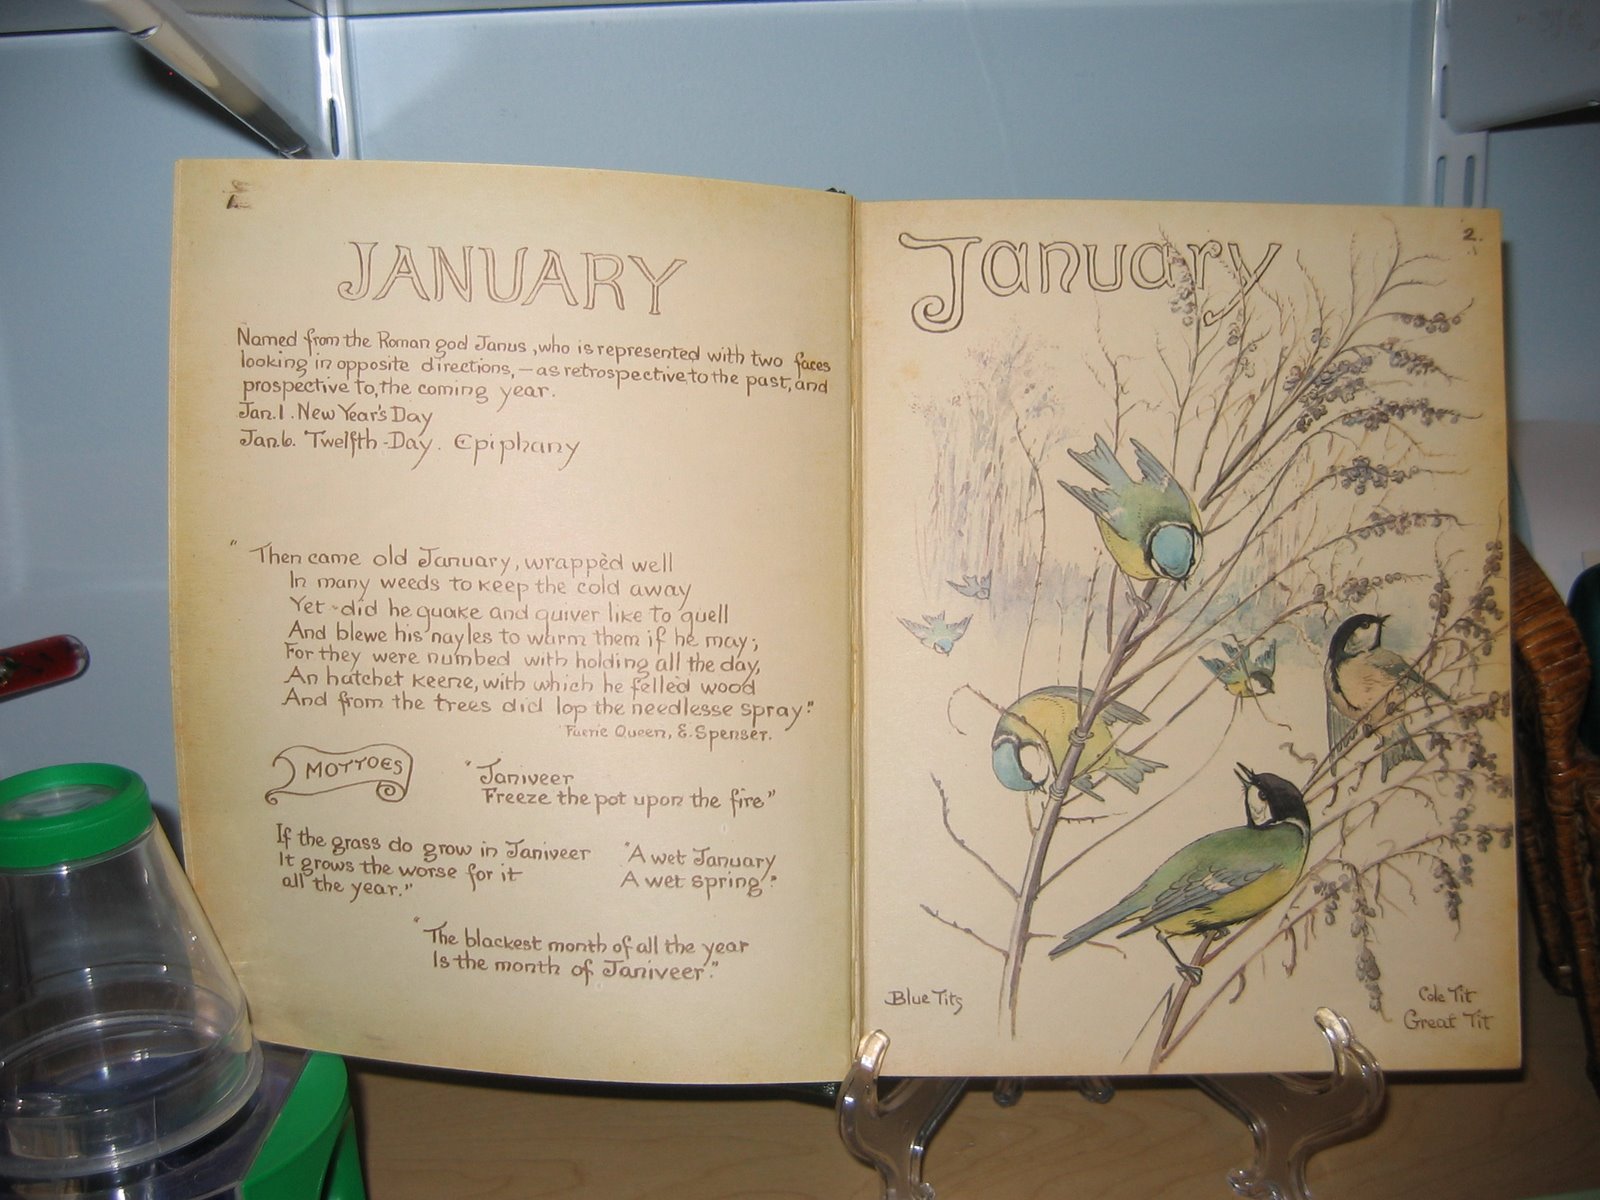 JANUARY
Named from the Roman god Janus, who is represented with two faces
looking in opposite directions, — as retrospective to the past, and
prospective to, the coming year.
Jan. 1. New Year's Day
Jan. 6. Twelfth-Day. Epiphany
" Then came old January, wrappèd well
In many weeds to keep the cold away
Yet did he quake and quiver like to quell
And blewe his nayles to warm them if he may;
For they were numbed with holding all the day,
An hatchet keene, with which he fellèd wood
And from the trees did lop the needlesse spray."
Faerie Queen, E. Spenser.
MOTTOES
"Janiveer
Freeze the pot upon the fire"
If the grass do grow in Janiveer
It grows the worse for it
all the year."
"A wet January
A wet spring".
"The blackest month of all the year
Is the month of Janiveer."
2.
January
Blue Tits
Cole Tit
Great Tit